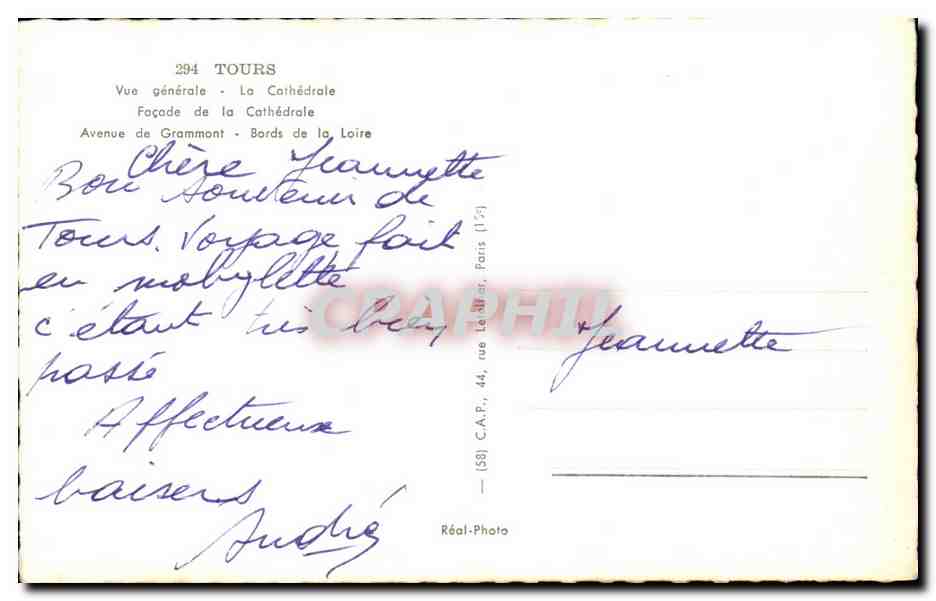 294 TOURS
Vue générale - La Cathédrale
Façade de la Cathédrale
Avenue de Grammont - Bords de la Loire
Chère Jeannette
Bon souvenir de
Tours. Voyage fait
en mobylette
c'étant très bien
passé
Affectueux
baisers
André
Jeannette
(58) C.A.P., 44, rue Letellier, Paris (15e)
Réal-Photo
CPAPHIL